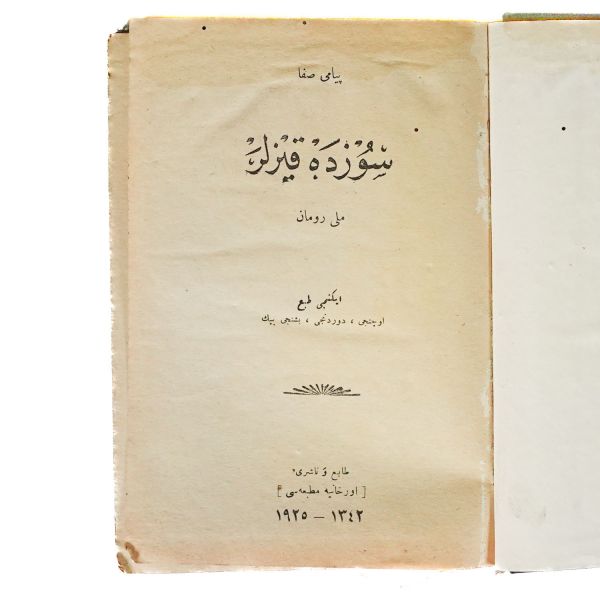 پیامی صفا
سوزده قیزلر
ملی رومان
ایکنجی طبع
اوچنجی ، دوردنجی ، بشنجی بیك
طابع و ناشری
[ اورخانیه مطبعه‌سی ]
١٣٤٢ – ١٩٢٥